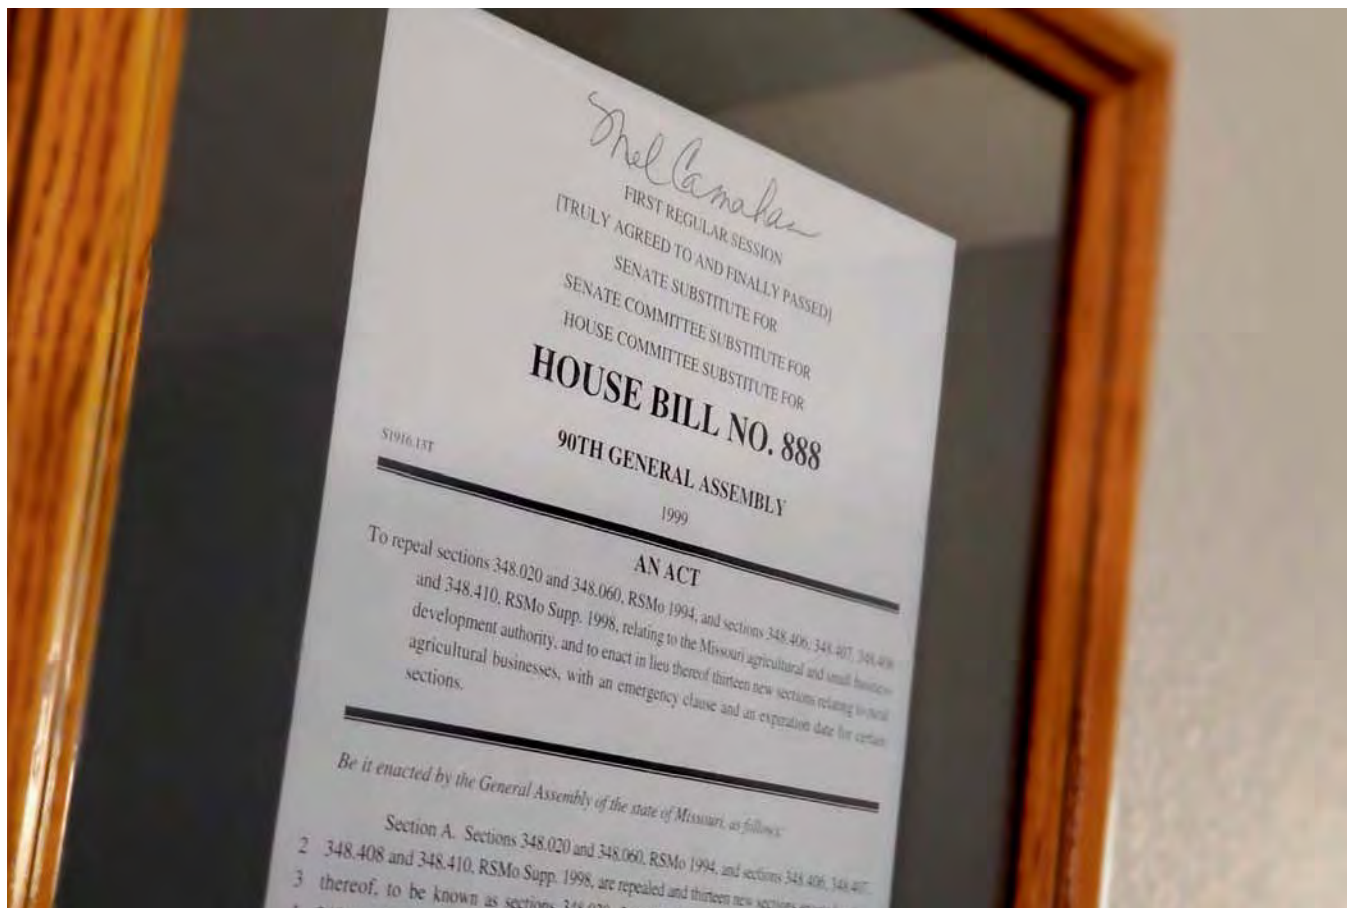 Mel Carnahan
FIRST REGULAR SESSION
[TRULY AGREED TO AND FINALLY PASSED]
SENATE SUBSTITUTE FOR
SENATE COMMITTEE SUBSTITUTE FOR
HOUSE COMMITTEE SUBSTITUTE FOR
HOUSE BILL NO. 888
90TH GENERAL ASSEMBLY
S1916.13T
1999
AN ACT
To repeal sections 348.020 and 348.060, RSMo 1994, and sections 348.406, 348.407, 348.408
and 348.410, RSMo Supp. 1998, relating to the Missouri agricultural and small business
development authority, and to enact in lieu thereof thirteen new sections relating to rural
agricultural businesses, with an emergency clause and an expiration date for certain
sections.
Be it enacted by the General Assembly of the state of Missouri, as follows:
Section A. Sections 348.020 and 348.060, RSMo 1994, and sections 348.406, 348.407,
2 348.408 and 348.410, RSMo Supp. 1998, are repealed and thirteen new sections
3 thereof, to be known as sections